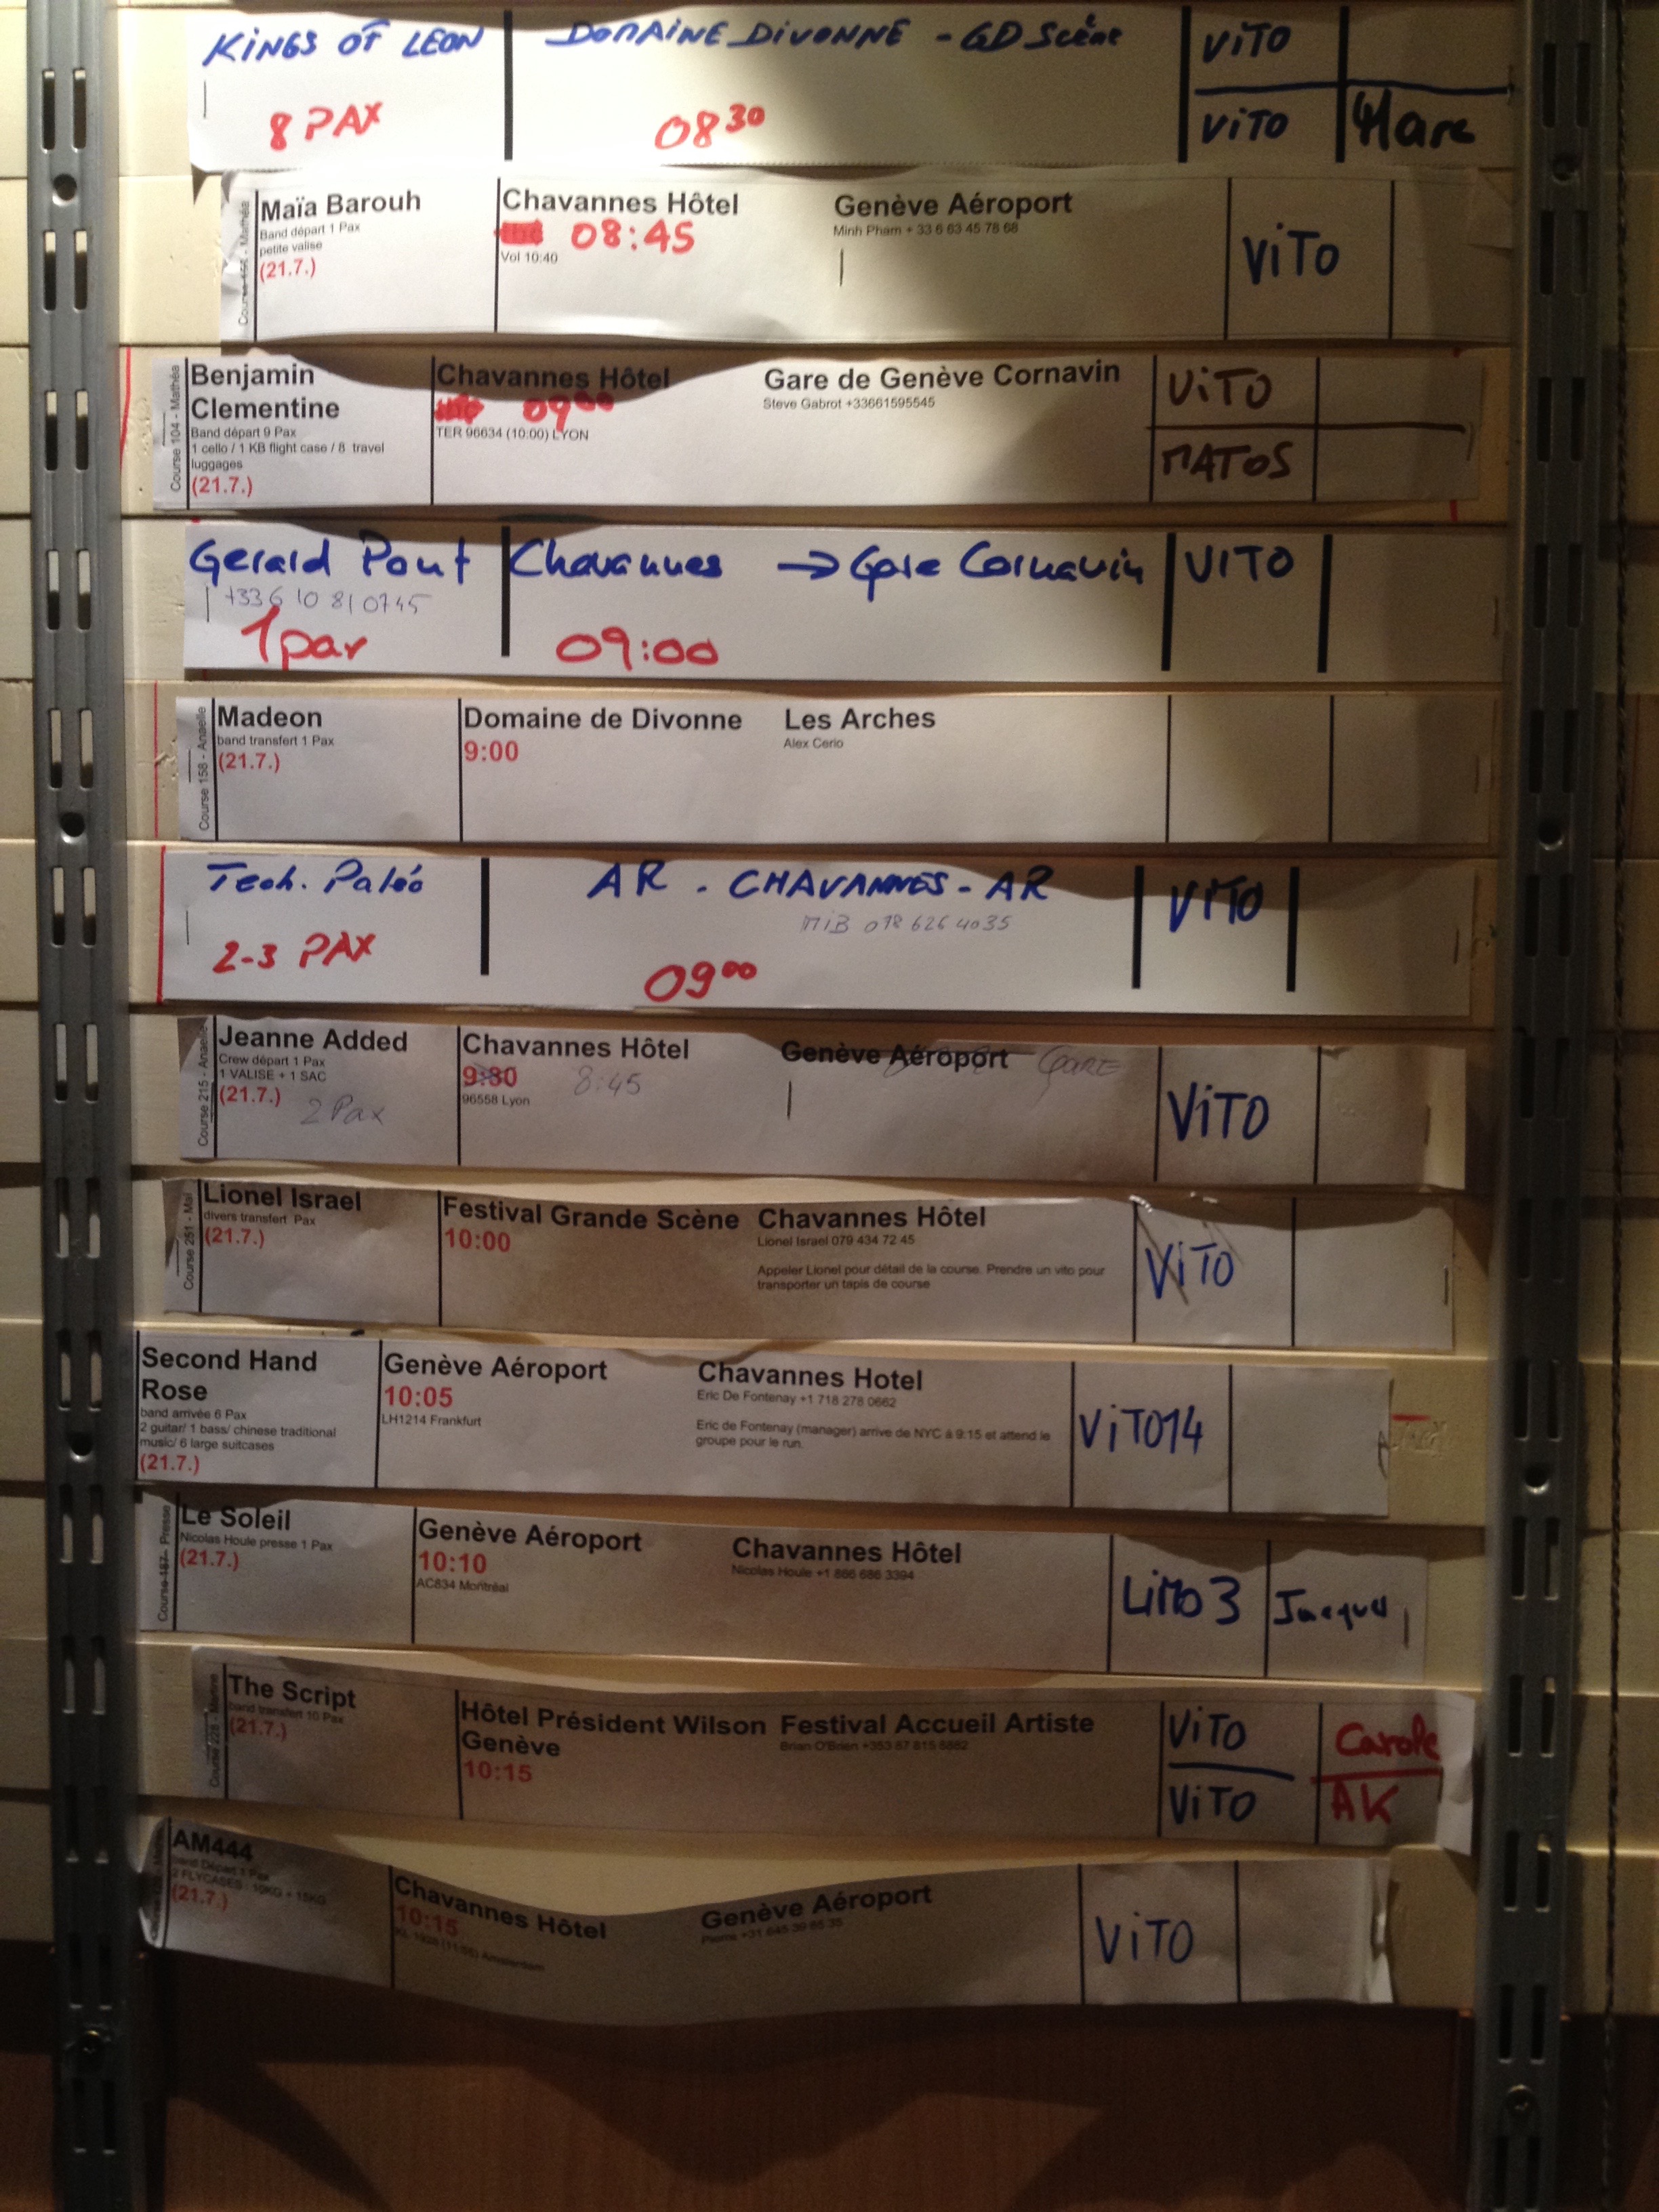 KINGS OF LEON
DOMAINE DIVONNE - GD Scène
ViTO
8 PAX
08 30
ViTO
Marc
Maïa Barouh
Band départ 1 Pax
petite valise
(21.7.)
Chavannes Hôtel
08:45
Vol 10:40
Genève Aéroport
Minh Pham + 33 6 63 45 78 68
ViTO
Course 104 - Mathéa
Benjamin
Clementine
Band départ 9 Pax
1 cello / 1 KB flight case / 8 travel
luggages
(21.7.)
Chavannes Hôtel
09 00
TER 96634 (10:00) LYON
Gare de Genève Cornavin
Steve Gabrot +33661595545
ViTO
MATOS
Gerald Pont
+33 6 10 81 07 45
1 pax
Chavannes → Gare Cornavin
09:00
ViTO
Course 158 - Anaelle
Madeon
band transfert 1 Pax
(21.7.)
Domaine de Divonne
9:00
Les Arches
Alex Cerio
Tech. Paléo
2-3 PAX
AR - CHAVANNES - AR
MiB 078 626 4035
09 00
ViTO
Course 215 - Anaelle
Jeanne Added
Crew départ 1 Pax
1 VALISE + 1 SAC
(21.7.)
2 Pax
Chavannes Hôtel
9:30
8:45
96558 Lyon
Genève Aéroport
GARE
ViTO
Course 251 - Maï
Lionel Israel
divers transfert Pax
(21.7.)
Festival Grande Scène
10:00
Chavannes Hôtel
Lionel Israel 079 434 72 45
Appeler Lionel pour détail de la course. Prendre un vito pour
transporter un tapis de course
ViTO
Second Hand
Rose
band arrivée 6 Pax
2 guitar/ 1 bass/ chinese traditional
music/ 6 large suitcases
(21.7.)
Genève Aéroport
10:05
LH1214 Frankfurt
Chavannes Hotel
Eric De Fontenay +1 718 278 0662
Eric de Fontenay (manager) arrive de NYC à 9:15 et attend le
groupe pour le run.
ViTO14
Course 187 - Presse
Le Soleil
Nicolas Houle presse 1 Pax
(21.7.)
Genève Aéroport
10:10
AC834 Montréal
Chavannes Hôtel
Nicolas Houle +1 866 686 3394
LiMO 3
Jacques
Course 228 - Martine
The Script
band transfert 10 Pax
(21.7.)
Hôtel Président Wilson
Genève
10:15
Festival Accueil Artiste
Brian O'Brien +353 87 815 6882
ViTO
Carole
ViTO
AK
AM444
band Départ 1 Pax
2 FLYCASES - 10KG + 15KG
(21.7.)
Chavannes Hôtel
10:15
Amsterdam
Genève Aéroport
ViTO